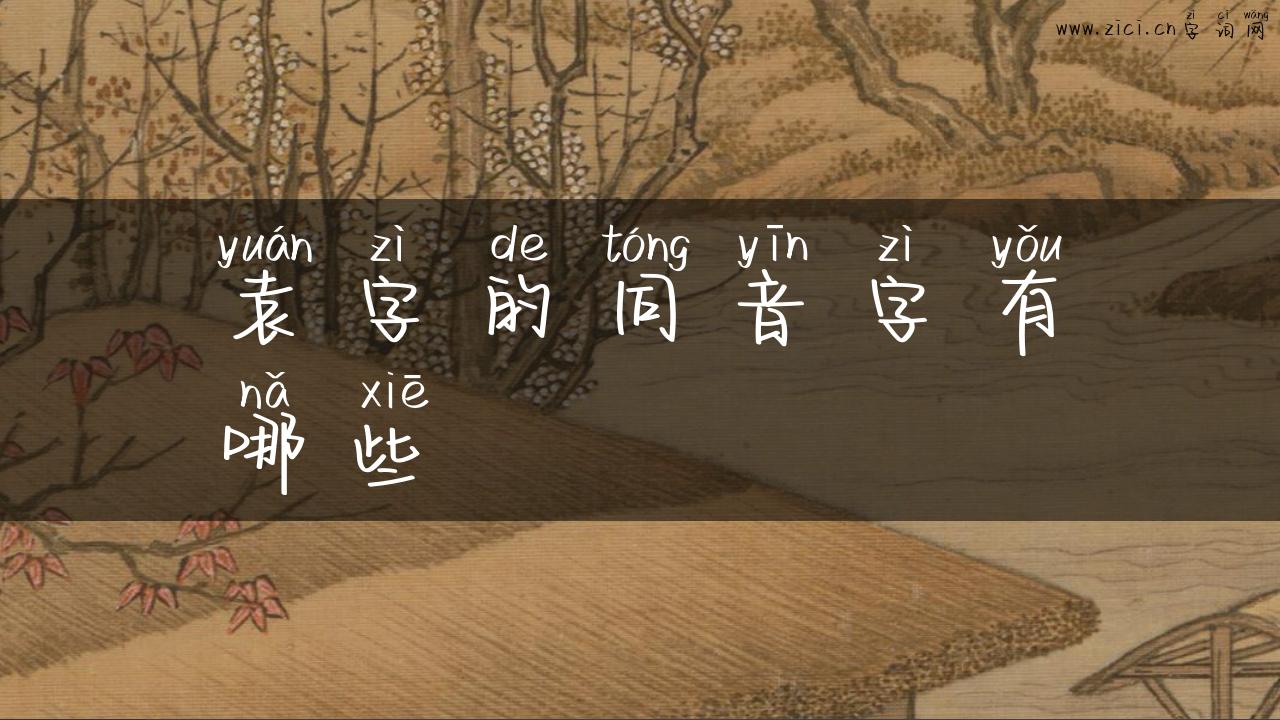 zì cí wǎng
www.zici.cn 字词网
yuán zì de tóng yīn zì yǒu
袁字的同音字有
nǎ xiē
哪些